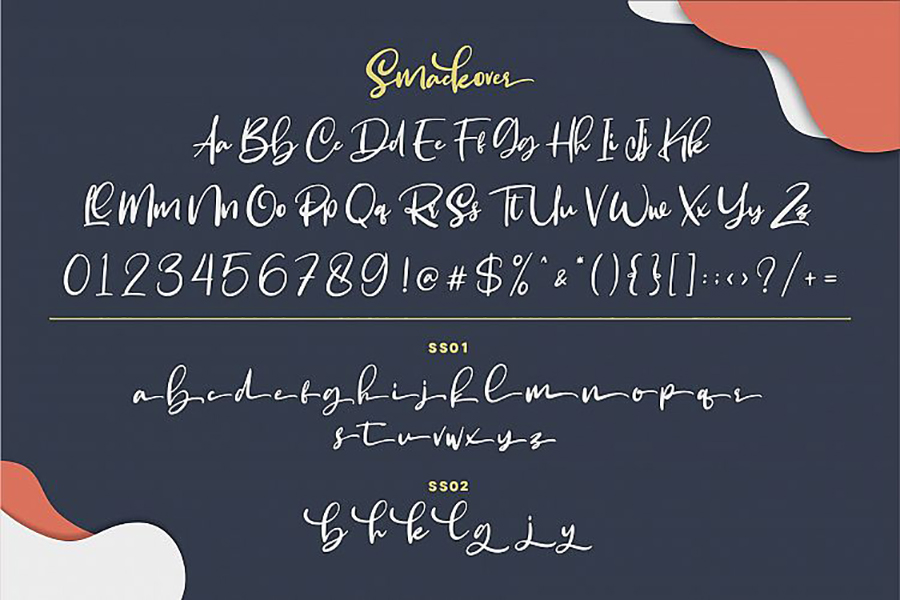 Smackover
Aa Bb Cc Dd Ee Ff Gg Hh Ii Jj Kk
Ll Mm Nn Oo Pp Qq Rr Ss Tt Uu V Ww Xx Yy Zz
0123456789!@#$%^&*(){}[]:;<>?/+=
SS01
abcdefghijklmnopqr
stuvwxyz
SS02
bhklgjy